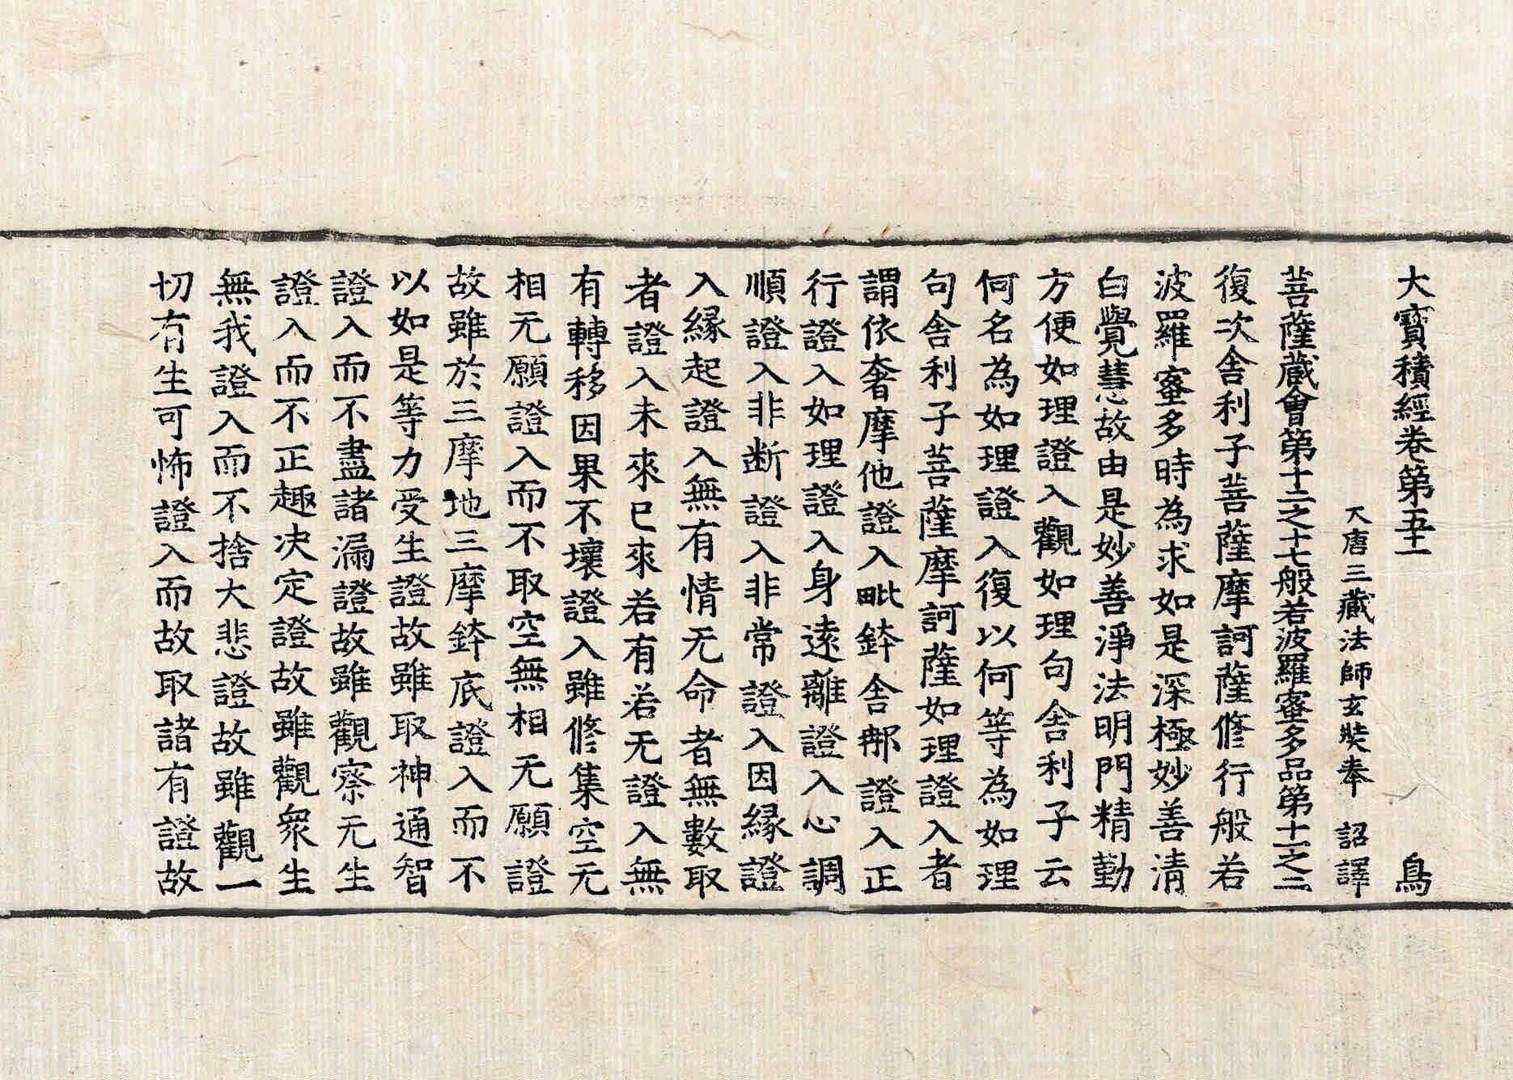 大寶積經卷第五十一　鳥
大唐三藏法師玄奘奉　詔譯
菩薩藏會第十二之十七般若波羅蜜多品第十一之二
復次舍利子菩薩摩訶薩修行般若
波羅蜜多時為求如是深極妙善清
白覺慧故由是妙善淨法明門精勤
方便如理證入觀如理句舍利子云
何名為如理證入復以何等為如理
句舍利子菩薩摩訶薩如理證入者
謂依奢摩他證入毗鉢舍那證入正
行證入如理證入身遠離證入心調
順證入非断證入非常證入因緣證
入緣起證入無有情无命者無數取
者證入未來已來若有若无證入無
有轉移因果不壞證入雖修集空无
相无願證入而不取空無相无願證
故雖於三摩地三摩鉢底證入而不
以如是等力受生證故雖取神通智
證入而不盡諸漏證故雖觀察无生
證入而不正趣决定證故雖觀眾生
無我證入而不捨大悲證故雖觀一
切有生可怖證入而故取諸有證故